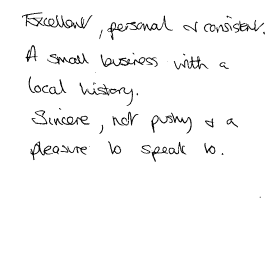 Excellent, personal & consistent.
A small business with a
local history.
Sincere, not pushy & a
pleasure to speak to.